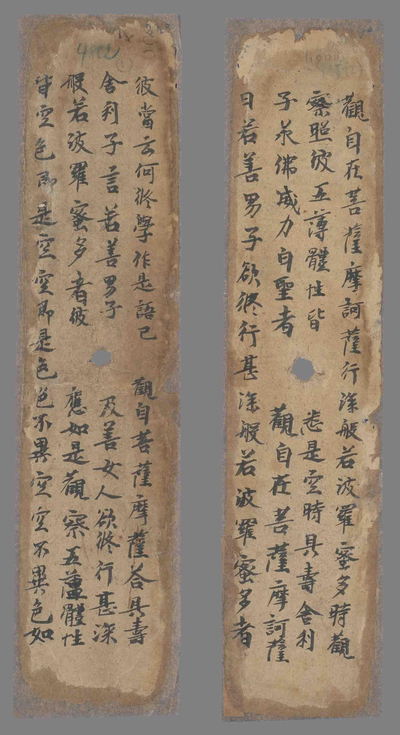 觀自在菩薩摩訶薩行深般若波羅蜜多時觀
察照彼五蘊體性皆悉是空時具壽舍利
子承佛威力白聖者觀自在菩薩摩訶薩
曰若善男子欲修行甚深般若波羅蜜多者
彼當云何修學作是語已觀自菩薩摩薩荅具壽
舍利子言若善男子及善女人欲修行甚深
般若波羅蜜多者彼應如是觀察五蘊體性
皆空色即是空空即是色色不異空空不異色如